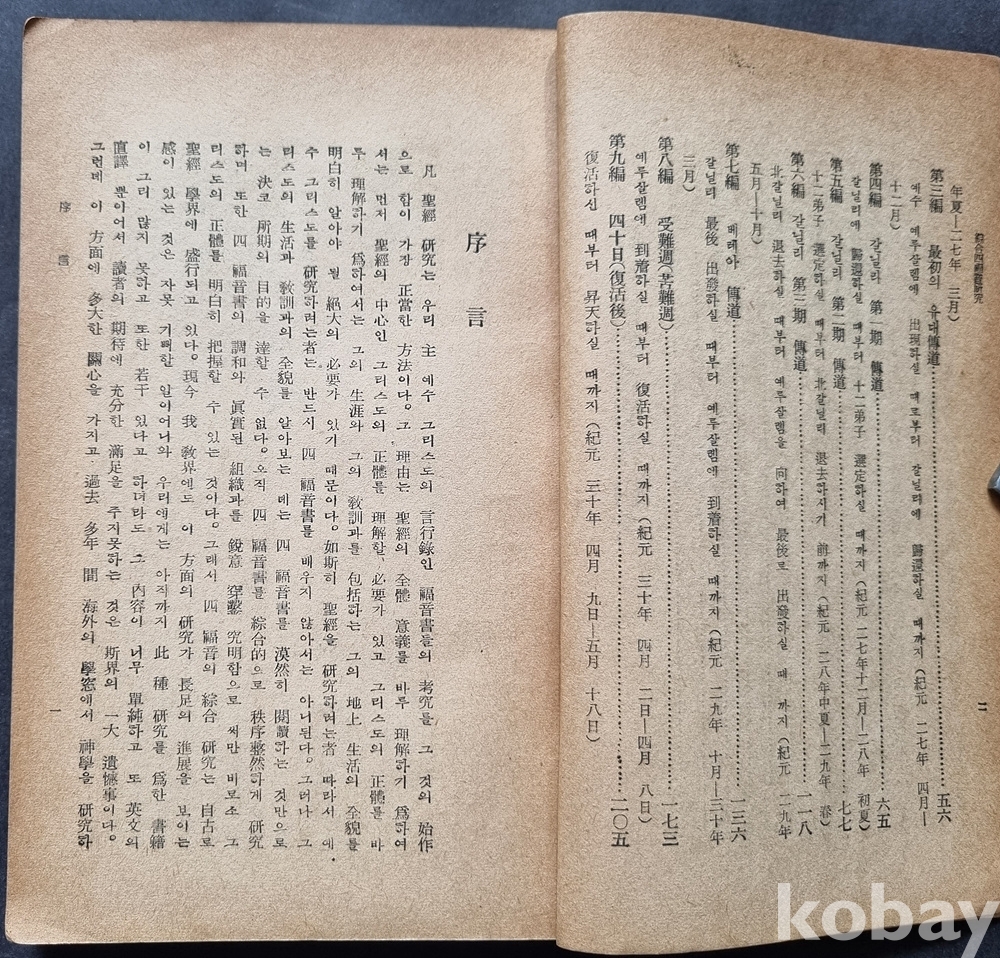 綜合四福音硏究
二
年夏―二七年 三月)
第三編 最初의 유대傳道……五六
예수 예루살렘에 出現하실 때로부터 갈닐리에 歸還하실 때까지(紀元 二七年 四月―
十二月)
第四編 갈닐리 第一期 傳道……六五
갈닐리에 歸還하실 때부터 十二弟子 選定하실 때까지(紀元 二七年十二月―二八年 初夏)
第五編 갈닐리 第二期 傳道……七七
十二弟子 選定하실 때부터 北갈닐리 退去하시기 前까지(紀元 二八年中夏―二九年 春)
第六編 갈닐리 第三期 傳道……一一八
北갈닐리 退去하실 때부터 예루살렘을 向하여 最後로 出發하실 때 까지(紀元 二九年
五月―十月)
第七編 베레아 傳道……一三六
갈닐리 最後 出發하실 때부터 예루살렘에 到着하실 때까지(紀元 二九年 十月―三十年
三月)
第八編 受難週(苦難週)……一七三
예루살렘에 到着하실 때부터 復活하실 때까지(紀元 三十年 四月 二日―四月 八日)
第九編 四十日(復活後)……二〇五
復活하신 때부터 昇天하실 때까지(紀元 三十年 四月 九日―五月 十八日)
序言
凡 聖經 硏究는 우리 主 예수 그리스도의 言行錄인 福音書들의 考究를 그 것의 始作
으로 함이 가장 正當한 方法이다。그 理由는 聖經의 全體 意義를 바루 理解하기 爲하여
서는 먼저 聖經의 中心인 그리스도의 正體를 理解할 必要가 있고 그리스도의 正體를 바
루 理解하기 爲하여서는 그의 生涯와 그의 敎訓과를 包括하는 그의 地上 生活의 全貌를
明白히 알아야 될 絕大의 必要가 있기 때문이다。如斯히 聖經을 硏究하려는者 따라서 예
수 그리스도를 硏究하려는者는 반드시 四 福音書를 배우지 않아서는 아니된다。그러나 그
리스도의 生活과 敎訓과의 全貌를 알아보는 데는 四 福音書를 漠然히 閱讀하는 것만으로
는 決코 所期의 目的을 達할 수 없다。오직 四 福音書를 綜合的으로 秩序整然하게 硏究
하며 또한 四 福音書의 調和와 眞實된 組織과를 銳意 穿鑿 究明함으로 써만 비로소 그
리스도의 正體를 明白히 把握할 수 있는 것이다。그래서 四 福音의 綜合 硏究는 自古로
聖經 學界에 盛行되고 있다。現今 我 敎界에도 이 方面의 硏究가 長足의 進展을 보이는
感이 있는 것은 자못 기뻐할 일이어니와 우리에게는 아직까지 此 種 硏究를 爲한 書籍
이 그리 많지 못하고 또한 若干 있다고 하더라도 그 內容이 너무 單純하고 또 英文의
直譯 뿐이어서 讀者의 期待에 充分한 滿足을 주지못하는 것은 斯界의 一大 遺憾事이다。
그런데 이 方面에 多大한 關心을 가지고 過去 多年 間 海外의 學窓에서 神學을 硏究하
序 言
一
kobay